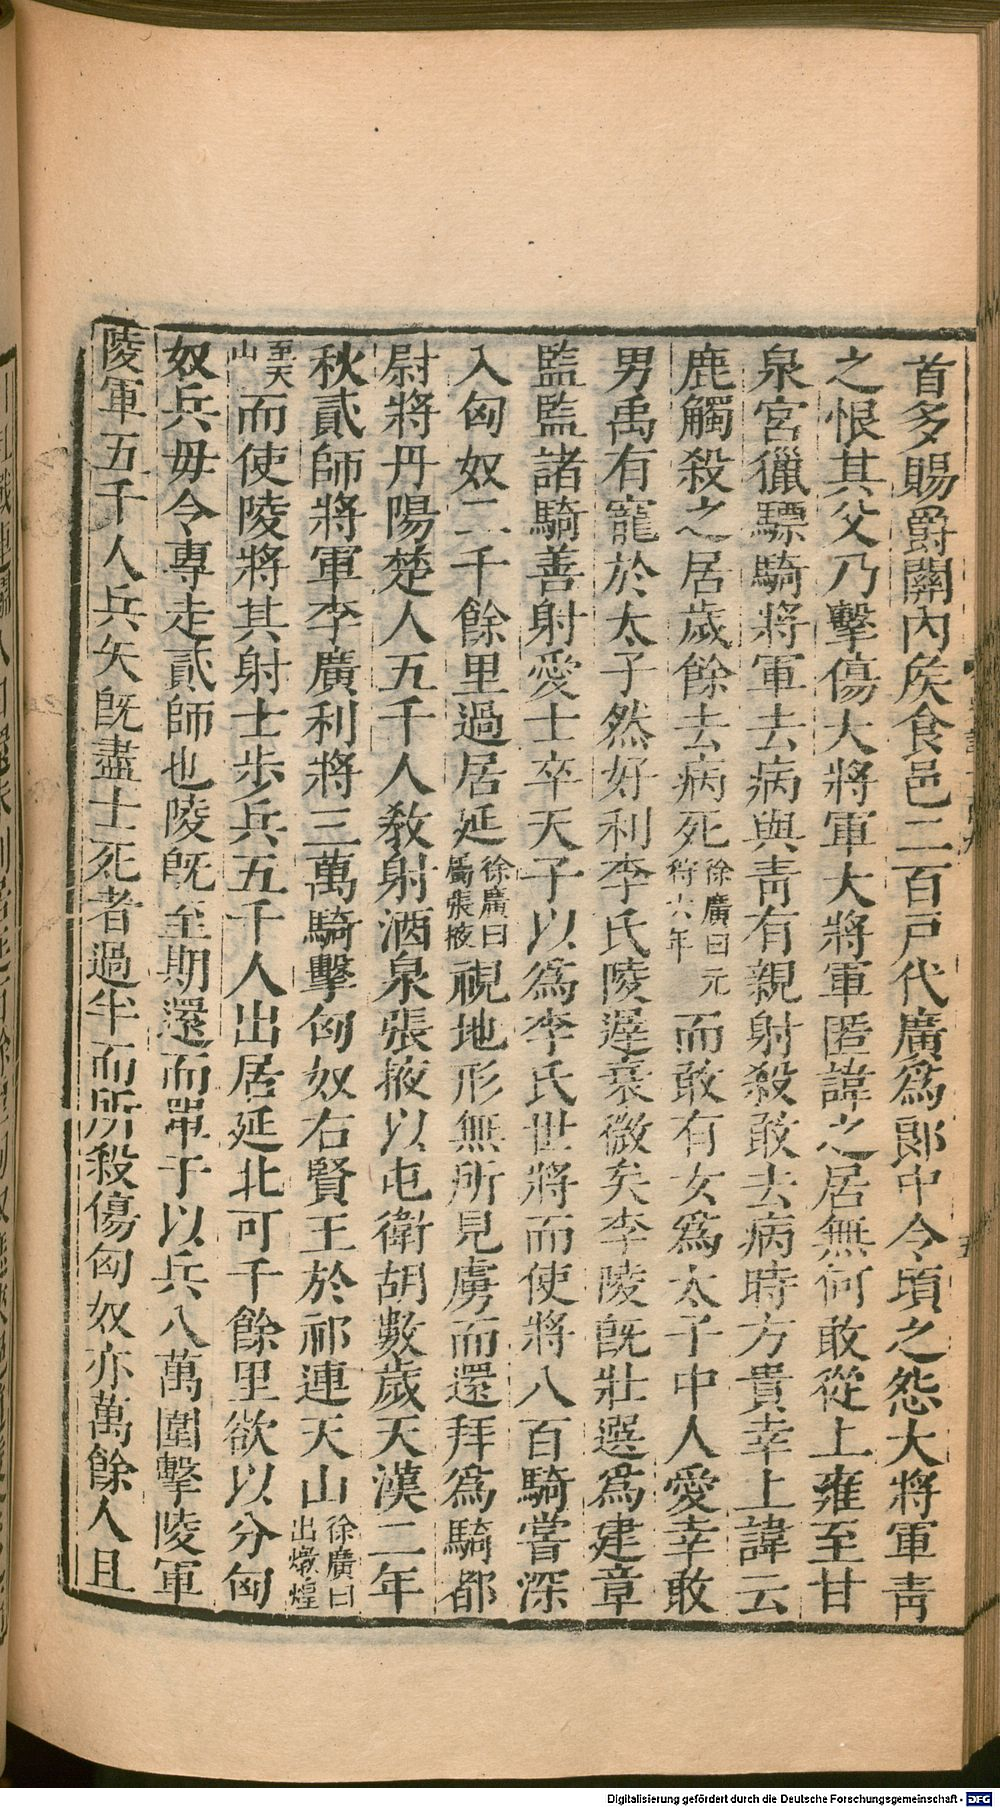 首多賜爵關內矦食邑二百戸代廣爲郞中令頃之怨大將軍靑
之恨其父乃擊傷大將軍大將軍匿諱之居無何敢從上雍至甘
泉宮獵驃騎將軍去病與靑有親射殺敢去病時方貴幸上諱云
鹿觸殺之居歲餘去病死徐廣曰元符六年而敢有女爲太子中人愛幸敢
男禹有寵於太子然好利李氏陵遲衰微矣李陵旣壯選爲建章
監監諸騎善射愛士卒天子以爲李氏世將而使將八百騎嘗深
入匈奴二千餘里過居延徐廣曰屬張掖視地形無所見虜而還拜爲騎都
尉將丹陽楚人五千人敎射酒泉張掖以屯衛胡數歲天漢二年
秋貳師將軍李廣利將三萬騎擊匈奴右賢王於祁連天山徐廣曰出燉煌
至天山而使陵將其射士步兵五千人出居延北可千餘里欲以分匈
奴兵毋令專走貳師也陵旣至期還而單于以兵八萬圍擊陵軍
陵軍五千人兵矢旣盡士死者過半而所殺傷匈奴亦萬餘人且
Digitalisierung gefördert durch die Deutsche Forschungsgemeinschaft - DFG